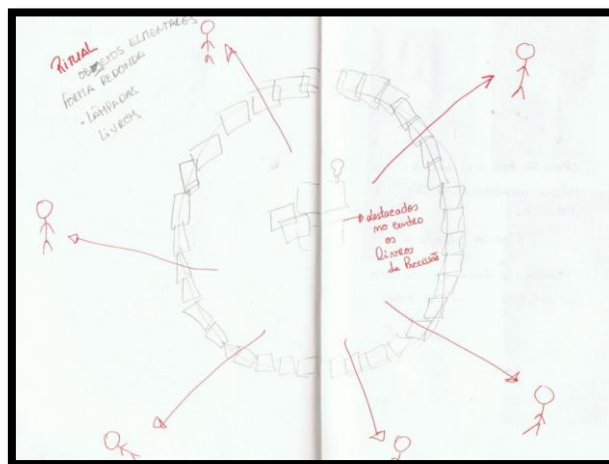 RITUAL
OBJETOS ELEMENTARES
FORMA REDONDA
- LÂMPADAS
LIVROS
destacados
no centro
os
Livros
da Procissão